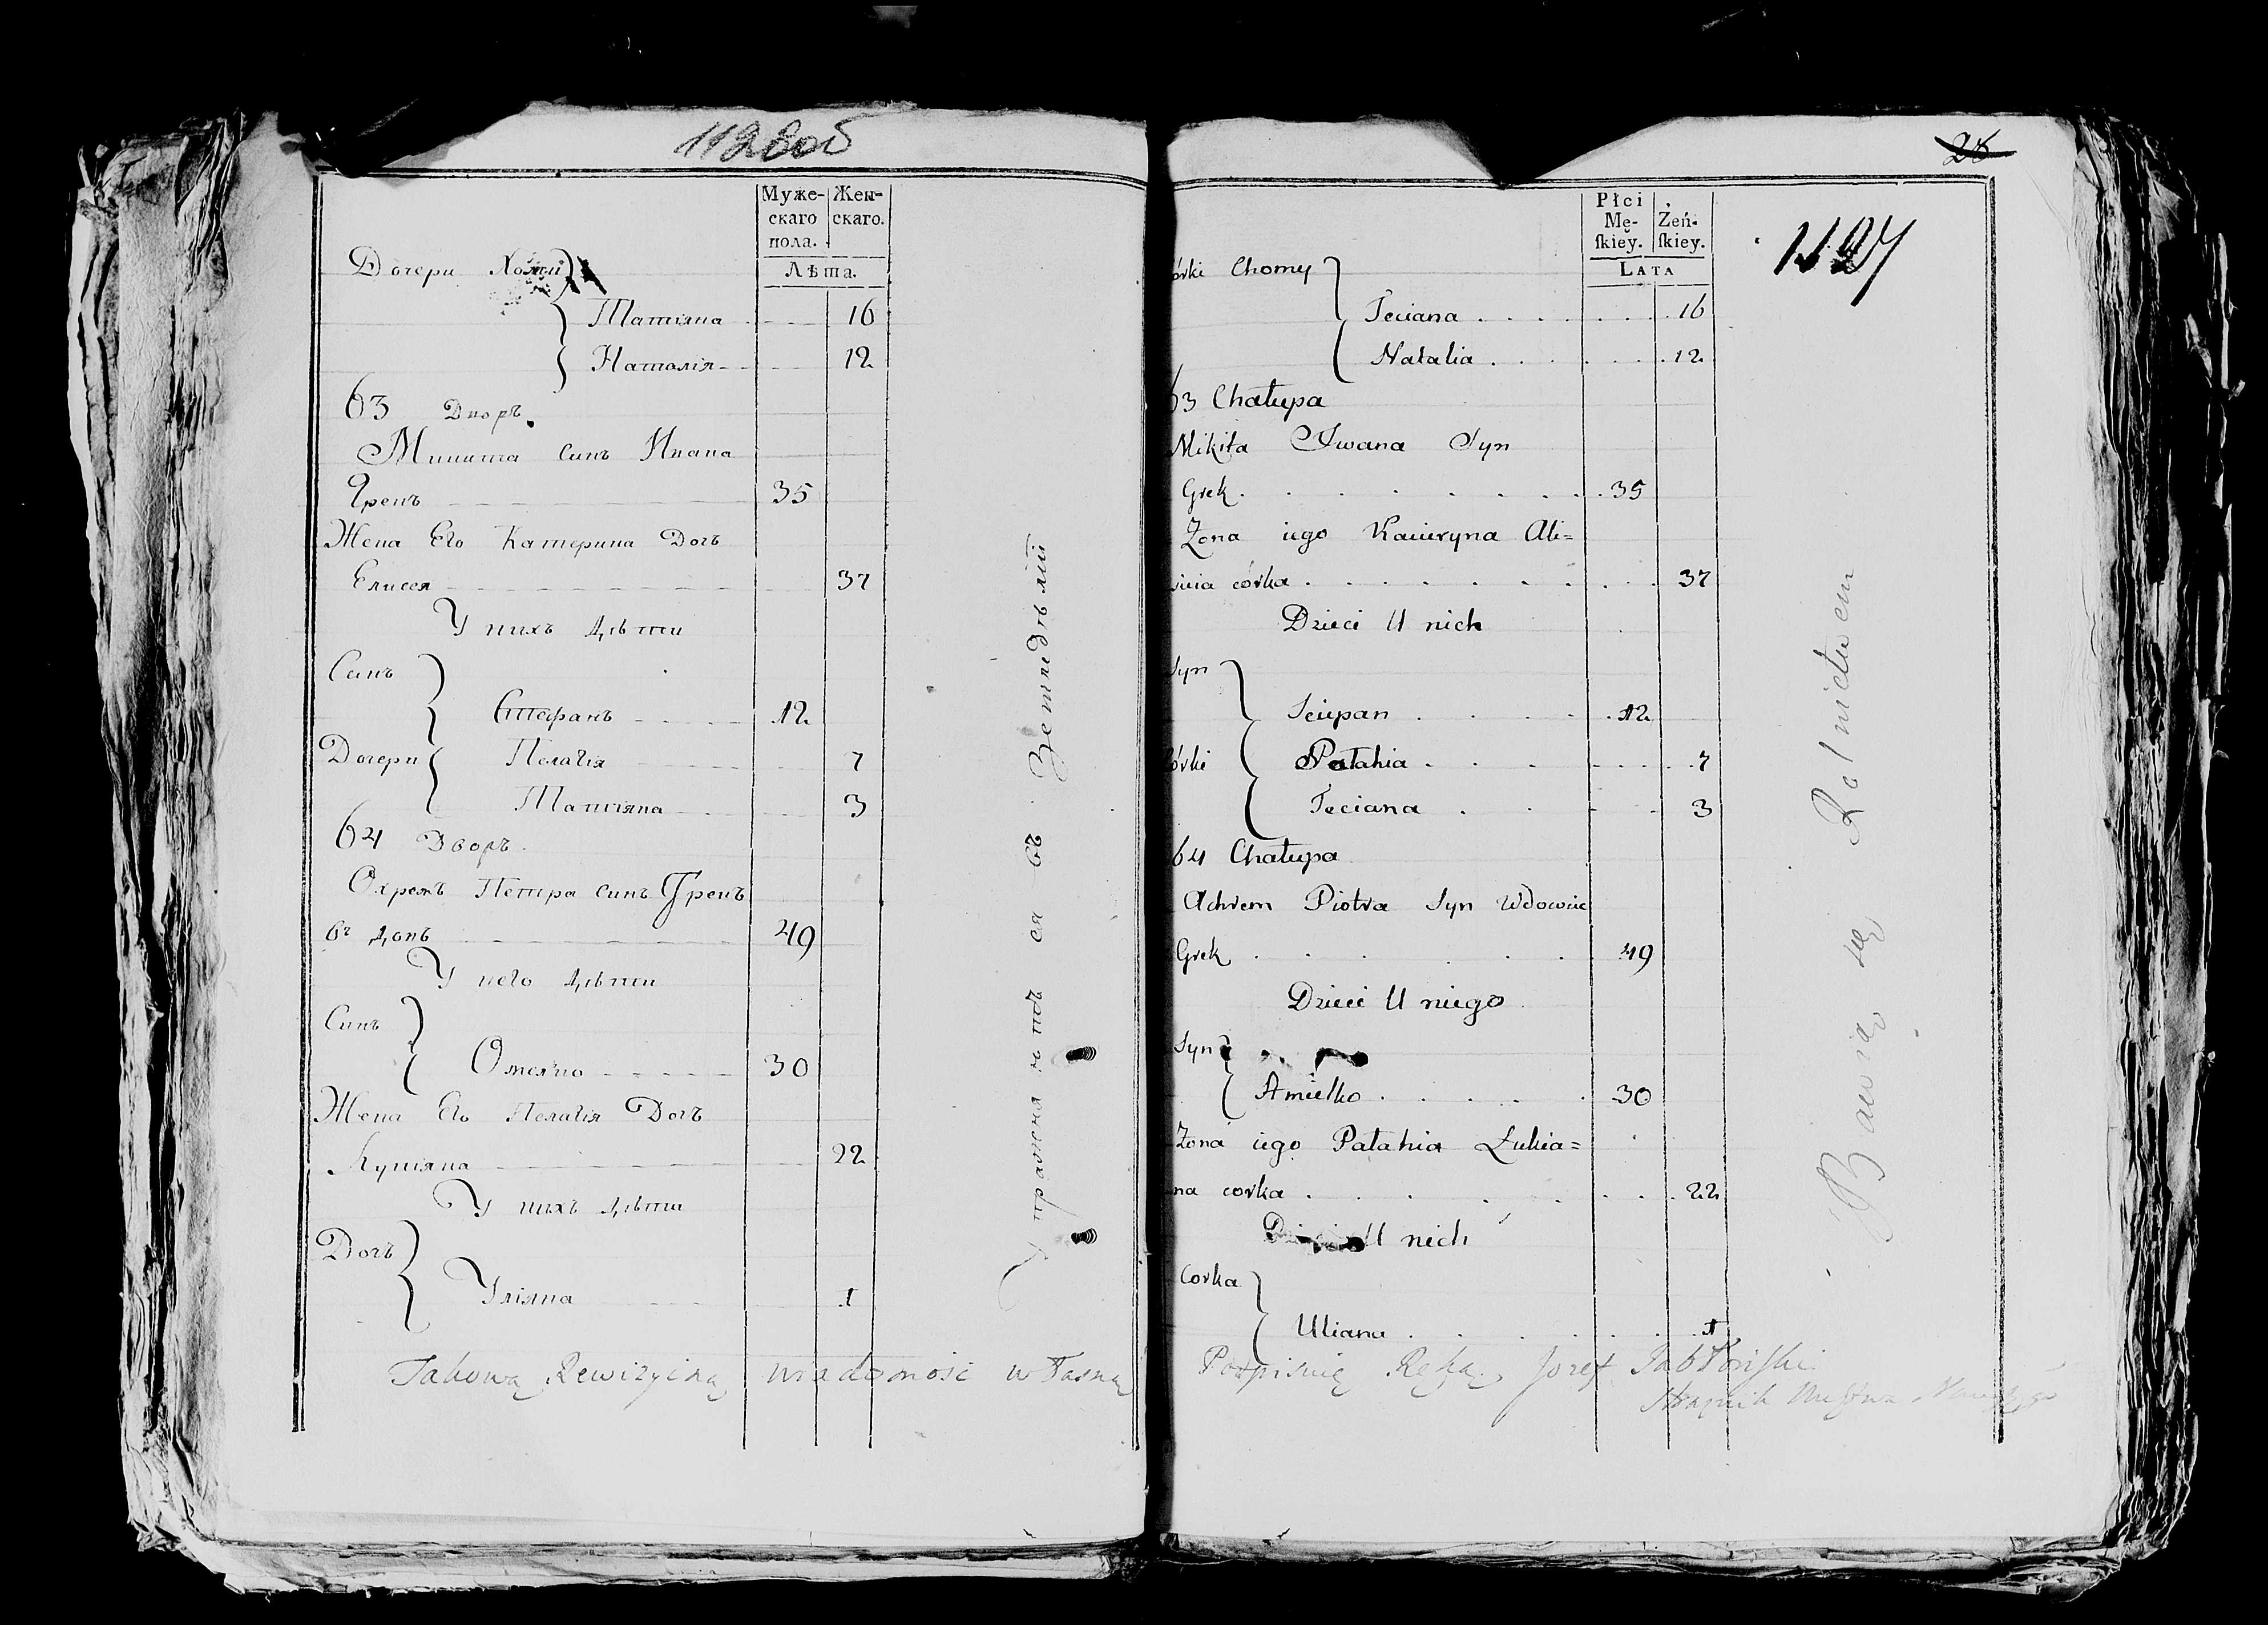 Муже-
скаго
пола.
Жен-
скаго.
Лѣта.
Дочери Хомы
Татіяна 16
Наталія 12
63 Дворъ
Микита синъ Ивана
Грекъ 35
Жена Его Катерина Дочъ
Елисея 37
У нихъ дѣти
Синъ
Стефанъ 12
Дочери Пелагія 7
Татіяна 3
64 Дворъ
Охремъ Петра синъ Грекъ
49
У него дѣти
Синъ
Омелко 30
Жена Его Пелагія Дочъ
Лукіяна 22
У нихъ дѣти
Дочъ
Уліяна 1
ся въ
Takową Rewizyiną wiadomość własną
28
Płci
Mę-
ſkiey.
Żeń-
ſkiey.
Lata
órki Chomy
Teciana 16
Natalia 12
63 Chałupa
Mikita Iwana Syn
Grek 35
Zona iego Kacieryna Ali=
sieia córka 37
Dzieci U nich
Syn
Sciepan 12
órki Pałahia 7
Teciana 3
64 Chałupa
Achrem Piotra Syn Wdowiec
Grek 49
Dzieci U niego
Syn
Amielko 30
Zona iego Pałahia Łukia=
na corka 22
Dzieci U nich
Corka
Uliana 1
Bawią się Rolnictwem
Podpisuię Ręką Jozef Jabłoński